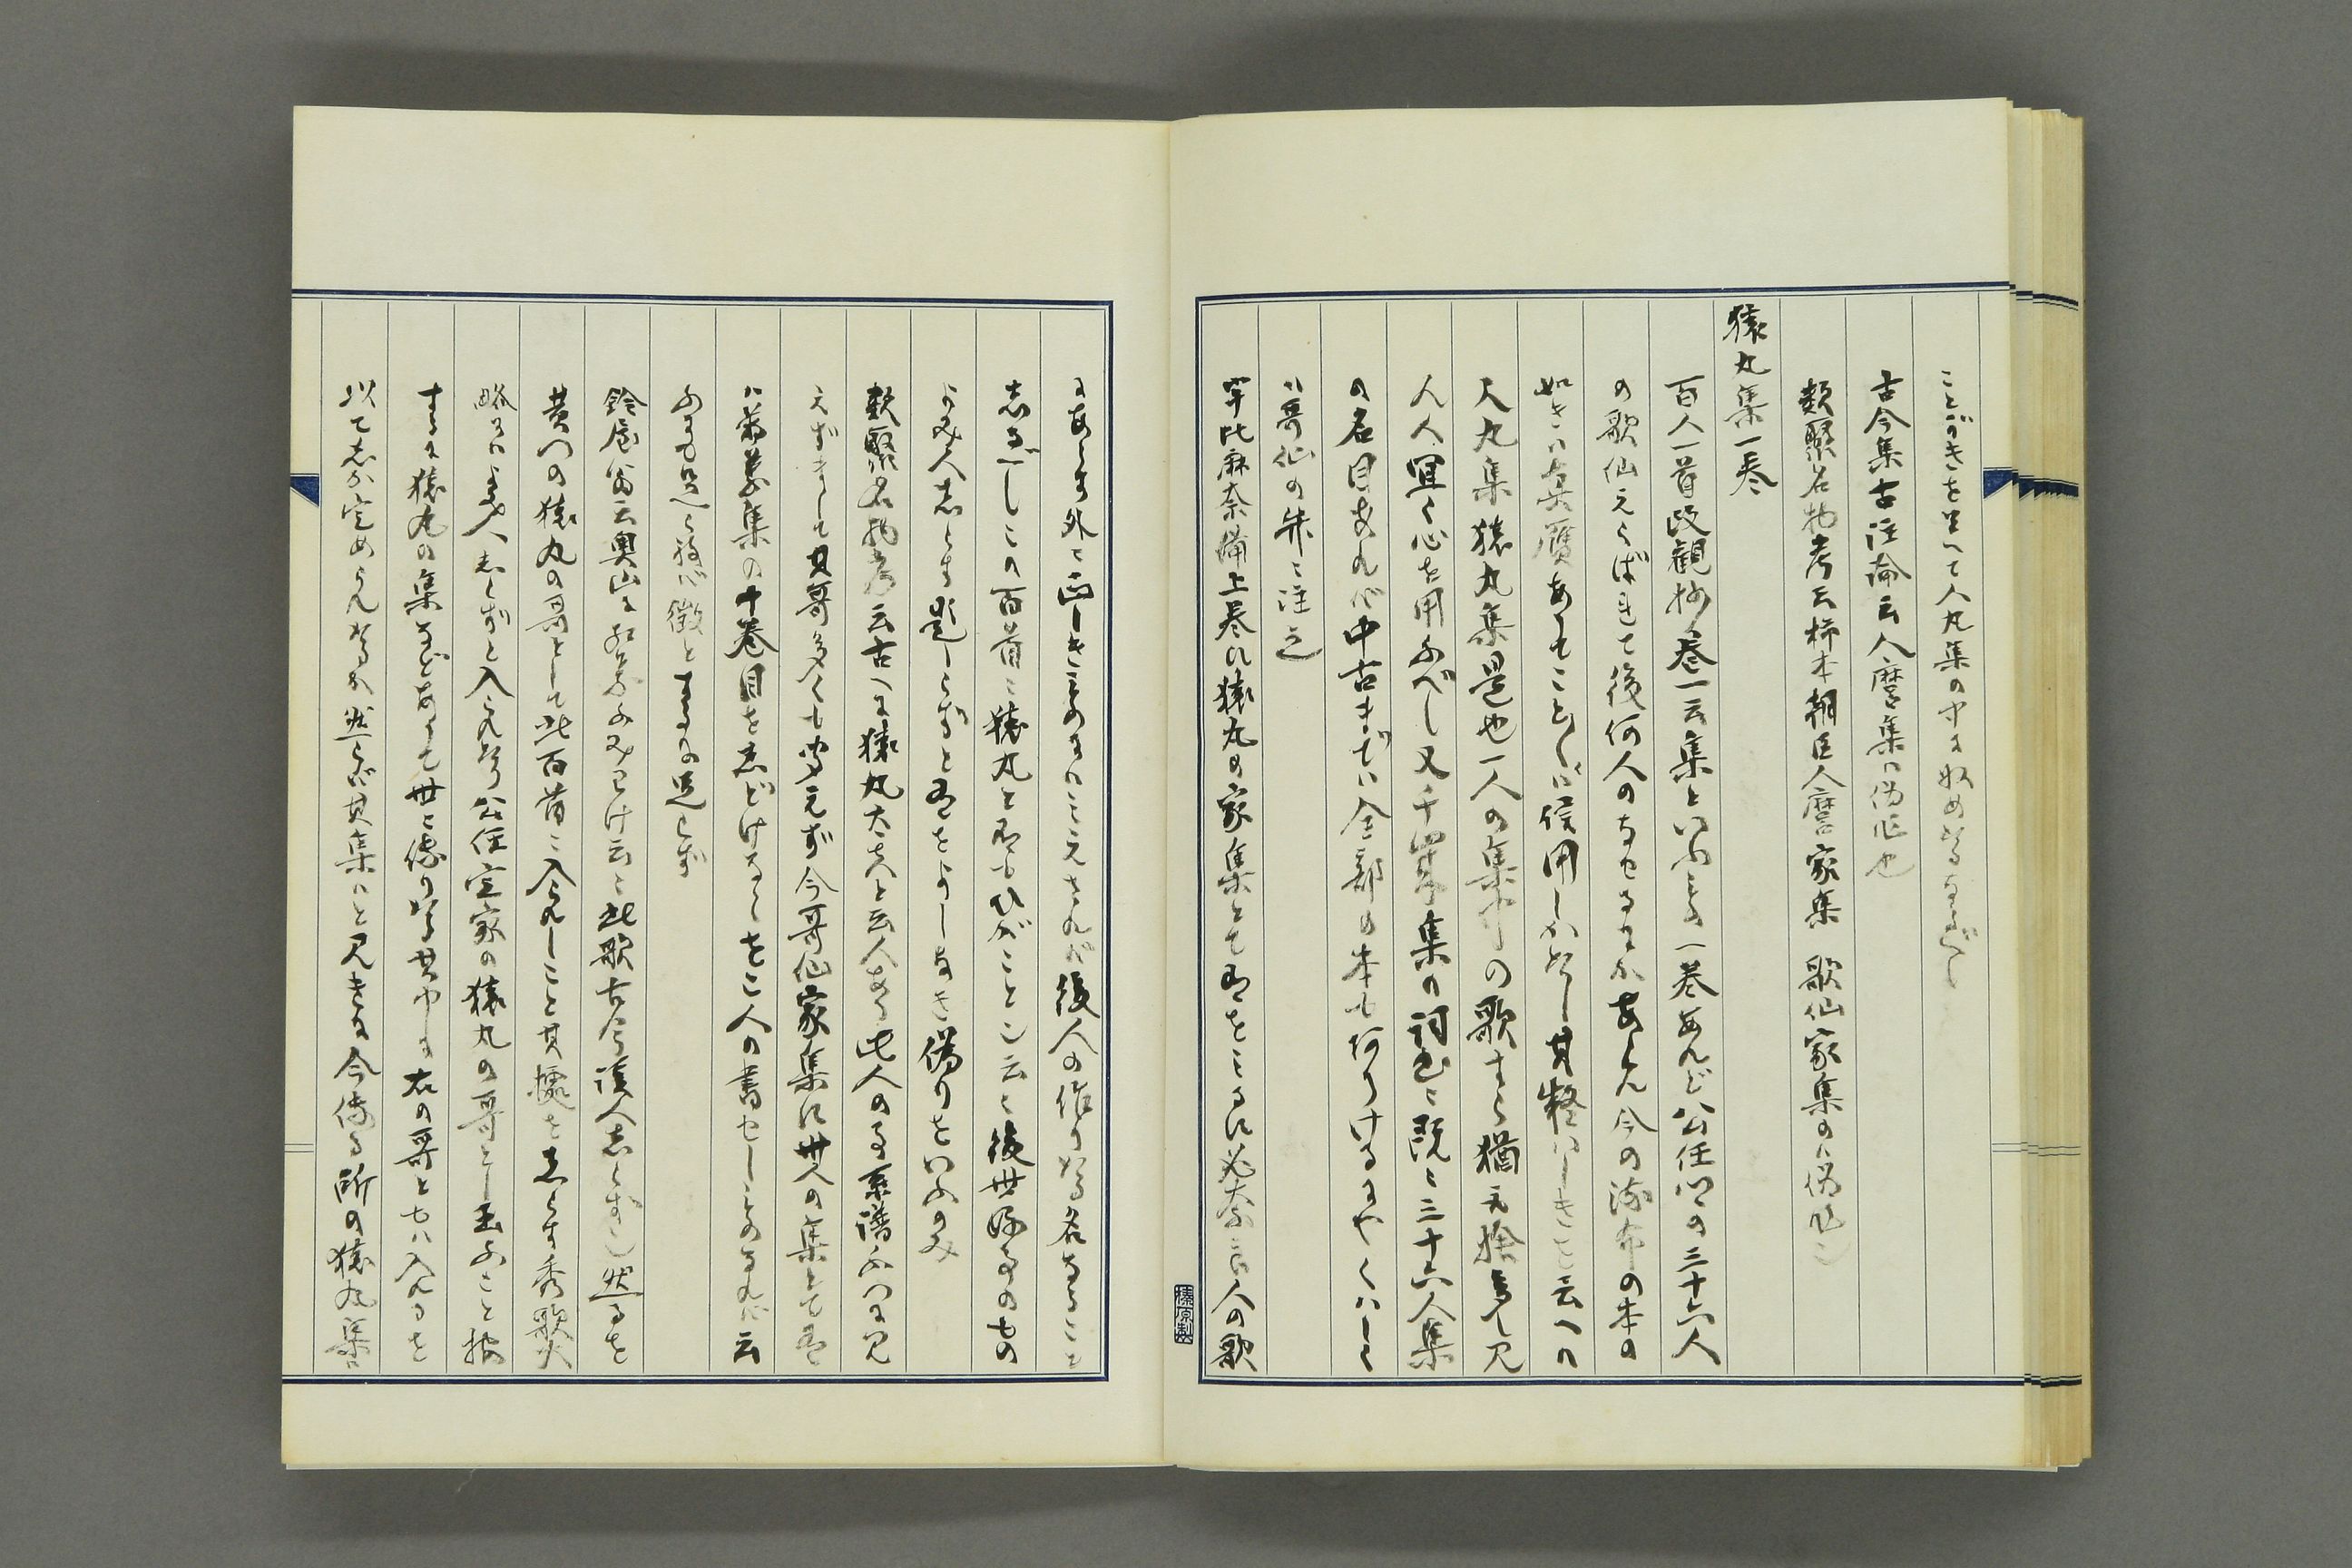 ことばがきをはへて人丸集の中に収めたるなるべし
古今集古注論云人麿集ハ偽作也
類聚名物考云柿本朝臣人麿家集 歌仙家集のハ偽作也
猿丸集一巻
百人一首改観抄巻一云集といふもの一巻あれど公任卿の三十六人
の歌仙えらばれて後何人のなせるにかあらん今の流布の本の
如きハ真贋あることゝへば信用しがたし其
人丸集猿丸集是也一人の集中の歌すら猶
人人宜く心を用ふべし又千載集の詞書に既に三十六人集
の名目あれば中古までハ全部の本も有りけるにやくハしく
ハ哥仙の条に注之
字比麻奈備上巻に猿丸の家集とて有をミるに必奈良人の歌
にあらず外に正しきものにミえされば後人の作りたる名なること
志るべしこの百首に猿丸と有もひがことゝ云々後世好事のもの
よみ人志らず題しらずと有をよしなき偽りをいふのみ
類聚名物考云古へに猿丸大夫と云人あり此人の事系譜ふつに見
えずまして其哥多くも聞えず今哥仙家集に世人の集とて有
ハ万葉集の十巻目をゑどけなくをこ人の書せしものなれば云
ふにも足らねば徴とするに足らず
鈴屋翁云奥山に紅葉ふみわけ云々此歌古今読人志らず也然るを
黄門の猿丸の哥として此百首に入られしこと其據を志らす秀歌大
略にはよみ人志らずと入られたり公任定家の猿丸の哥とし玉ふこと按
するに猿丸の集などありて世に傳りたる其中に右の哥とも入れるを
以て志か定めらんなるか然らば其集ハと見きに今傳る所の猿丸集ハ
榛原製